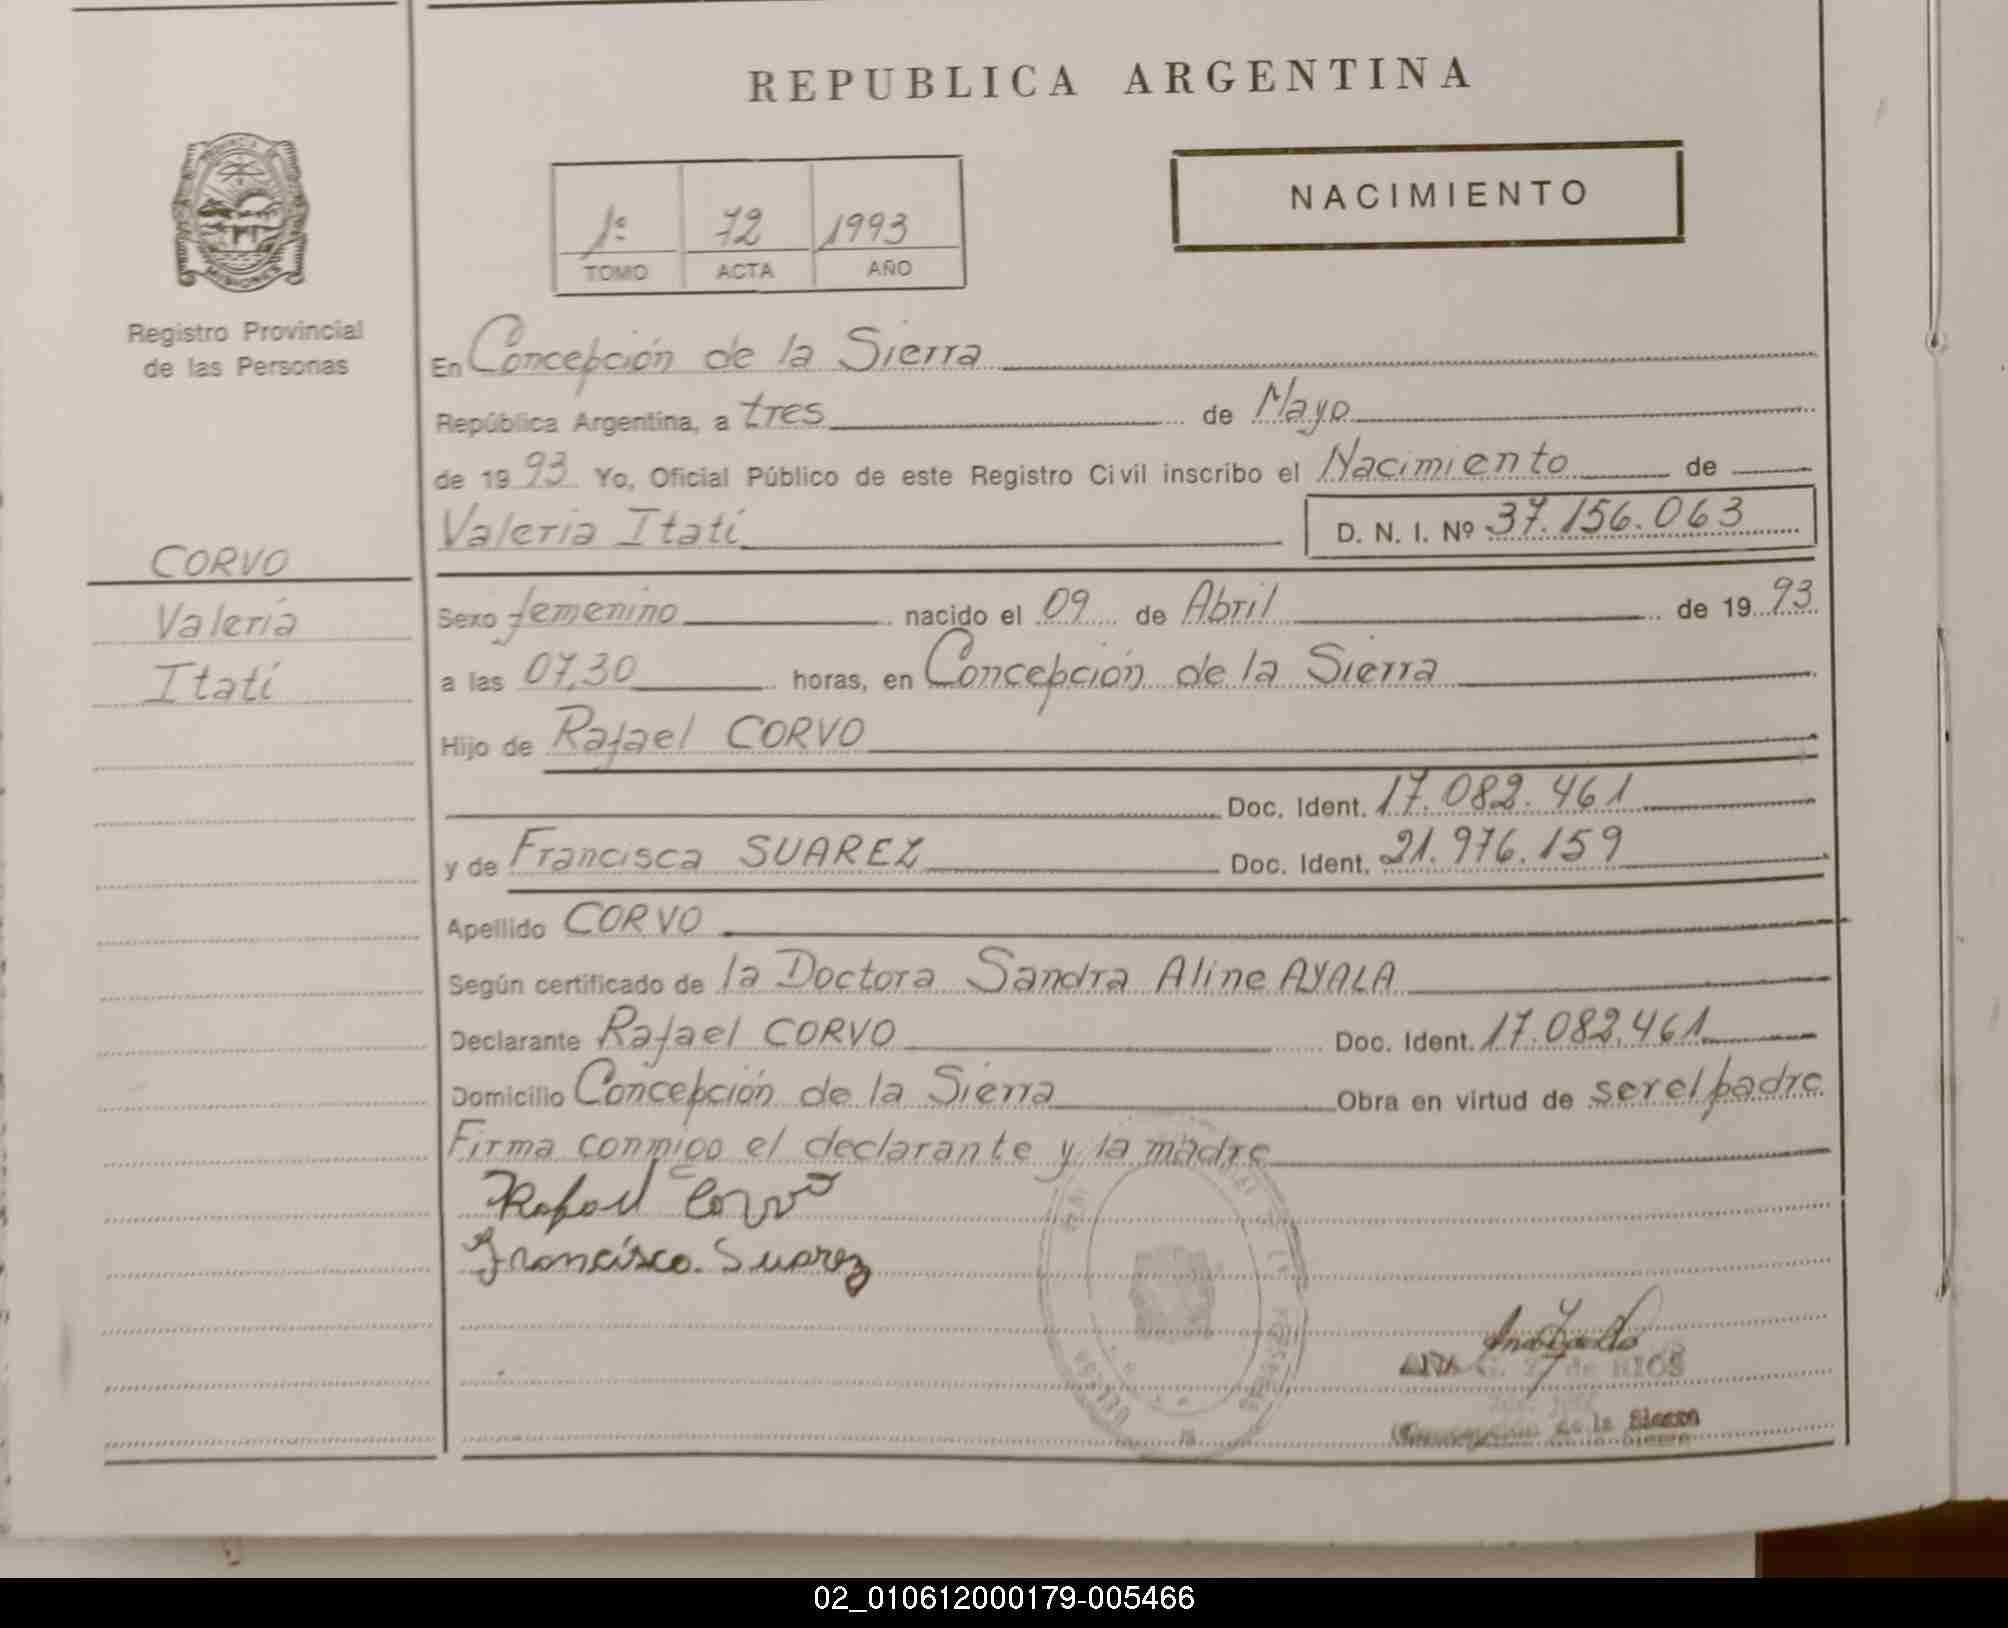 REPUBLICA ARGENTINA
NACIMIENTO
1º 72 1993
TOMO ACTA AÑO
Registro Provincial
de las Personas
CORVO
Valeria
Itatí
En Concepción de la Sierra
República Argentina, a tres de Mayo
de 1993 Yo, Oficial Público de este Registro Civil inscribo el Nacimiento de
Valeria Itatí D. N. I. Nº 37.156.063
Sexo femenino nacido el 09 de Abril de 1993
a las 07,30 horas, en Concepción de la Sierra
Hijo de Rafael CORVO
Doc. Ident. 17.082.461
y de Francisca SUAREZ Doc. Ident. 21.976.159
Apellido CORVO
Según certificado de la Doctora Sandra Aline AYALA
Declarante Rafael CORVO Doc. Ident. 17.082.461
Domicilio Concepción de la Sierra Obra en virtud de ser el padre
Firma conmigo el declarante y la madre
Rafael Corvo
Francisca Suarez
de RIOS
de la Sierra
02_010612000179-005466